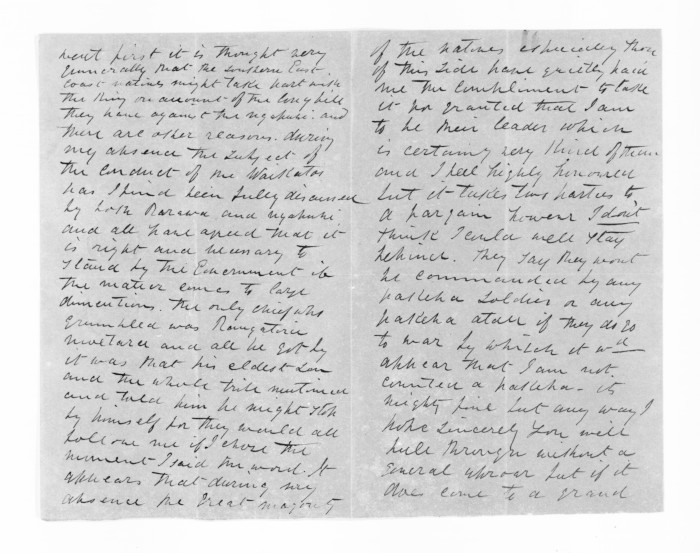 went first it is thought very
generally that the southern East
coast natives might take part with
the King on account of the long bill
they have against the ngapuhi. and
there are other reasons. during
my absence the subject of
the conduct of the Waikatos
has I find been fully discussed
by both Rarawa and ngapuhi
and all have agreed that it
is right and necessary to
stand by the Government if
the matter comes to large
dimentions. the only chief who
grumbled was
and all he got by
it was that his eldest son
and the whole tribe mutinied
and told him he might stop
by himself for they would all
follow me if I chose the
moment I said the word. It
appears that during my
absence the great majority
of the natives especially those
of this side have greatly paid
me the compliment to take
it for granted that I am
to be their leader which
is certainly very kind of them
and I feel highly honoured
but it takes two parties to
a bargain however I don't
think I could well stay
behind. They say they wont
be commanded by any
pakeha soldier or any
pakeha atall if they do go
to war by which it wd
appear that I am not
counted a pakeha - its
mighty fine but any way I
hope sincerely you will
pull through without a
general uproar but if it
does come to a grand